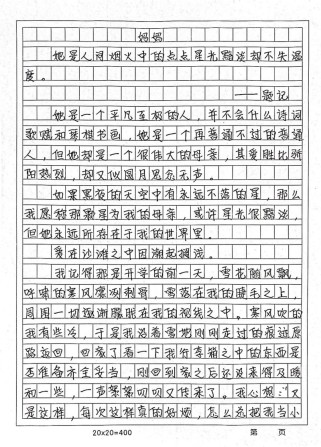 妈妈
她是人间烟火中的点点星光黯淡却不失温
度。
——题记
她是一个平凡至极的人，并不会什么诗词
歌赋和琴棋书画，她是一个再普通不过的普通
人，但她却是一个很伟大的母亲，其爱胜比骄
阳热烈，却又似圆月黑夜无声。
如果黑夜的天空中有永远不落的星，那么
我愿称那颗星为我的母亲，或许星光很黯淡，
但她永远所存在于我的世界里。
爱在沙滩之中因潮起搁浅。
我记得那是开学的前一天，雪花随风飘，
呼啸的寒风凛冽刺骨，雪落在我的睫毛之上，
周围一切逐渐朦胧在我的视线之中。寒风吹的
我有些冷，于是我沿着雪地刚刚走过的痕迹原
路返回，回家了看一下我行李箱之中的东西是
否准备齐全妥当，刚回到家之后还没来得及暖
和一些，一声絮絮叨叨又传来了。我心想：“又
是这样，每次这样真的好烦，怎么总把我当小
20×20=400 第 页